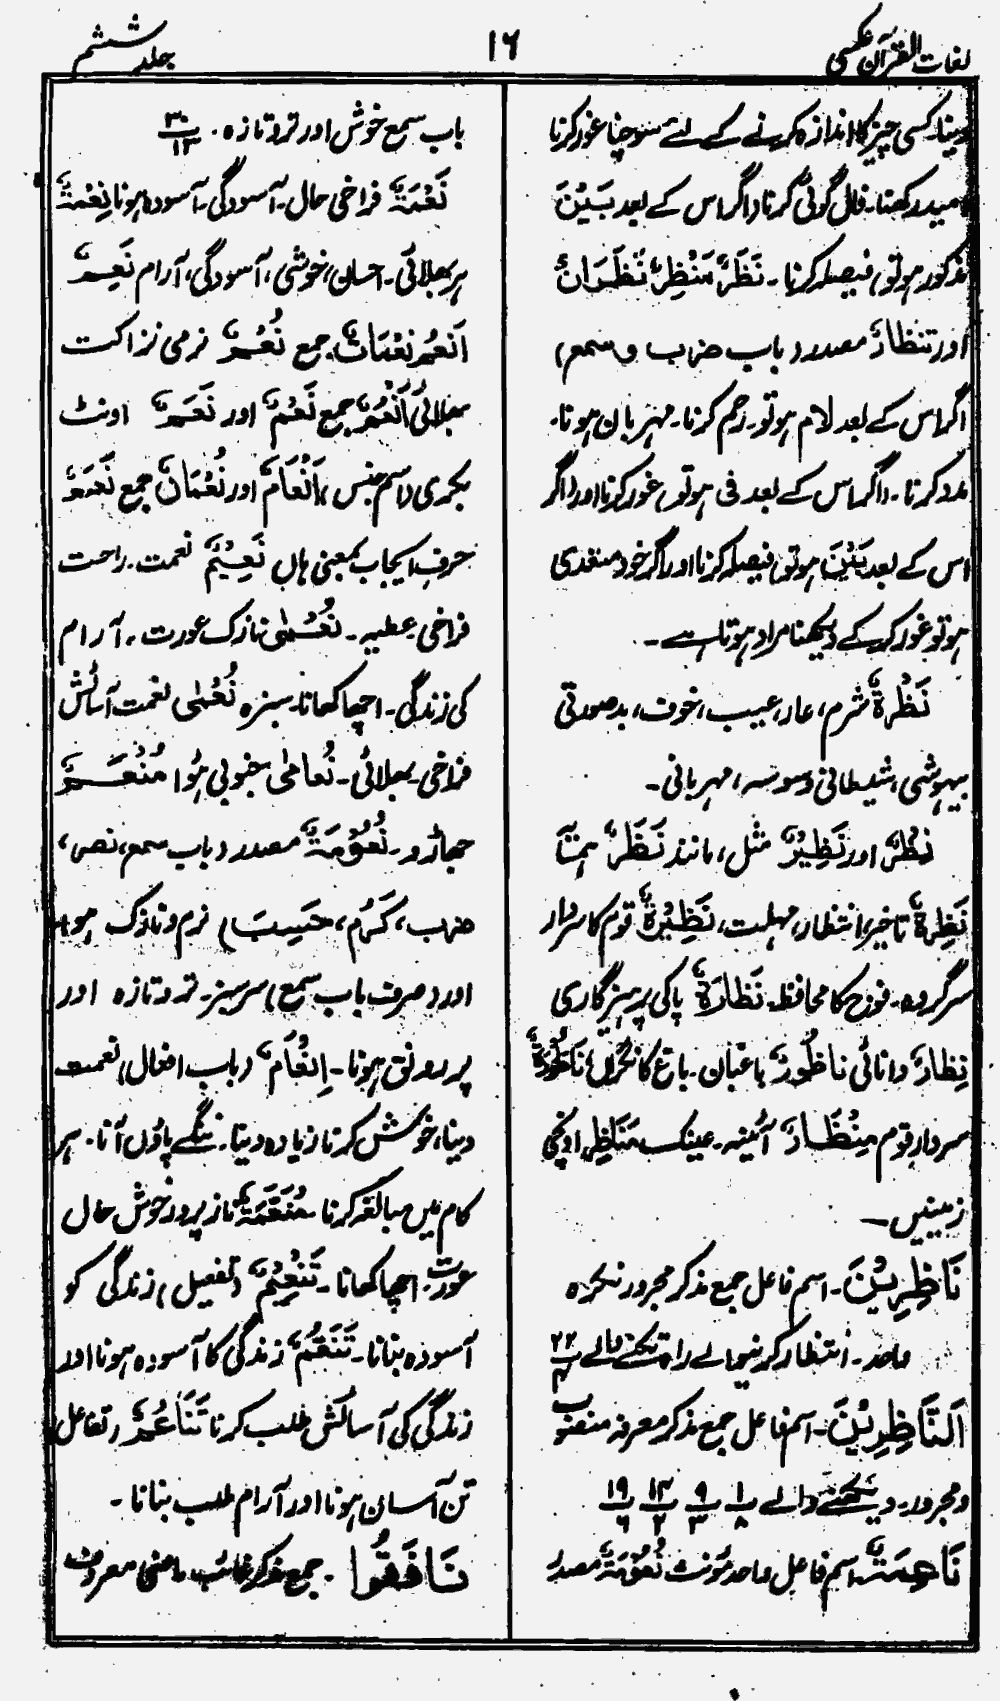 لغات القرآن عکسی
۱۶
جلد ششم
دینا۔ کسی چیز کا اندازہ کرنے کے لئے سوچنا غور کرنا
امید رکھنا۔ فال گوئی کرنا (اگر اس کے بعد بَیْنَ
مذکور ہو تو) فیصلہ کرنا۔ نَظَرٌ مَنْظَرٌ نَظَرَانٌ
اور تَنْظَارٌ مصدر (باب ضرب و سمع)
اگر اس کے بعد لام ہو تو۔ رحم کرنا۔ مہربان ہونا۔
مدد کرنا۔ (اگر اس کے بعد فی ہو تو) غور کرنا اور (اگر
اس کے بعد بَیْنَ ہو تو) فیصلہ کرنا اور اگر خود متعدی
ہو تو غور کر کے دیکھنا مراد ہوتا ہے۔
نَظْرَةٌ شرم، عار، عیب، خوف، بدصورتی
بیہوشی، شیطانی وسوسہ، مہربانی۔
نِظْرٌ اور نَظِیْرٌ مثل، مانند نَظَرٌ ہمتا
نَظِرَةٌ تاخیر، انتظار، مہلت، نَظِیْرَةٌ قوم کا سردار
سرگروہ۔ فوج کا محافظ۔ نَظَارَةٌ پاکی پرہیزگاری
نِظَارٌ دانائی نَاظُوْرٌ باغبان۔ باغ کا نگراں نَاظُوْرَةٌ
سردار قوم مِنْظَارٌ آئینہ۔ عینک مَنَاظِرُ اونچی
زمینیں۔
نَاظِرِیْنَ۔ اسم فاعل جمع مذکر مجرور نکرہ
واحد۔ انتظار کرنیوالے راہ تکنے والے ۲۲/۴
اَلنَّاظِرِیْنَ۔ اسم فاعل جمع مذکر معرفہ منصوب
و مجرور۔ دیکھنے والے ۱/۸ ۹/۳ ۱۴/۲ ۱۹/۶
نَاعِمَةٌ اسم فاعل واحد مؤنث نُعُوْمَةٌ مصدر
باب سمع خوش اور تروتازہ۔ ۳۰/۱۳
نَعْمَةٌ فراخی حال۔ آسودگی۔ آسودہ ہونا نِعْمَةٌ
ہر بھلائی۔ احسان، خوشی، آسودگی، آرام نَعِیْمٌ
اَنْعُمٌ نِعْمَاتٌ جمع نُعْمٌ نرمی نزاکت
بھلائی اَنْعُمٌ جمع نَعْمٌ اور نَعَمٌ اونٹ
بکری (اسم جنس)، اَنْعَامٌ اور نُعْمَانٌ جمع نَعَمْ
حرف ایجاب بمعنی ہاں نَعِیْمٌ نعمت۔ راحت
فراخی۔ عطیہ۔ نُعْمٰی نازک عورت۔ آرام
کی زندگی۔ اچھا کھانا۔ سبزہ نُعْمٰی نعمت آسائش
فراخی۔ بھلائی۔ نُعَامٰی جنوبی ہوا مُنْعَمٌ
جھاڑو۔ نُعُوْمَةٌ مصدر (باب سمع، نصر،
ضرب، کَرُمَ، حَسِبَ) نرم و نازک ہونا
اور (صرف باب سمع) سرسبز۔ تروتازہ اور
پر رونق ہونا۔ اِنْعَامٌ (باب افعال) نعمت
دینا، خوش کرنا زیادہ دینا۔ ننگے پاؤں آنا۔ ہر
کام میں مبالغہ کرنا۔ مُنَعَّمَةٌ ناز پرور خوش حال
عورت۔ اچھا کھانا۔ تَنْعِیْمٌ (تفعیل) زندگی کو
آسودہ بنانا۔ تَنَعُّمٌ زندگی کا آسودہ ہونا اور
زندگی کی آسائش طلب کرنا تَنَاعُمٌ (تفاعل)
تن آسان ہونا اور آرام طلب بنانا۔
نَافَقُوا۔ جمع مذکر غائب ماضی معروف